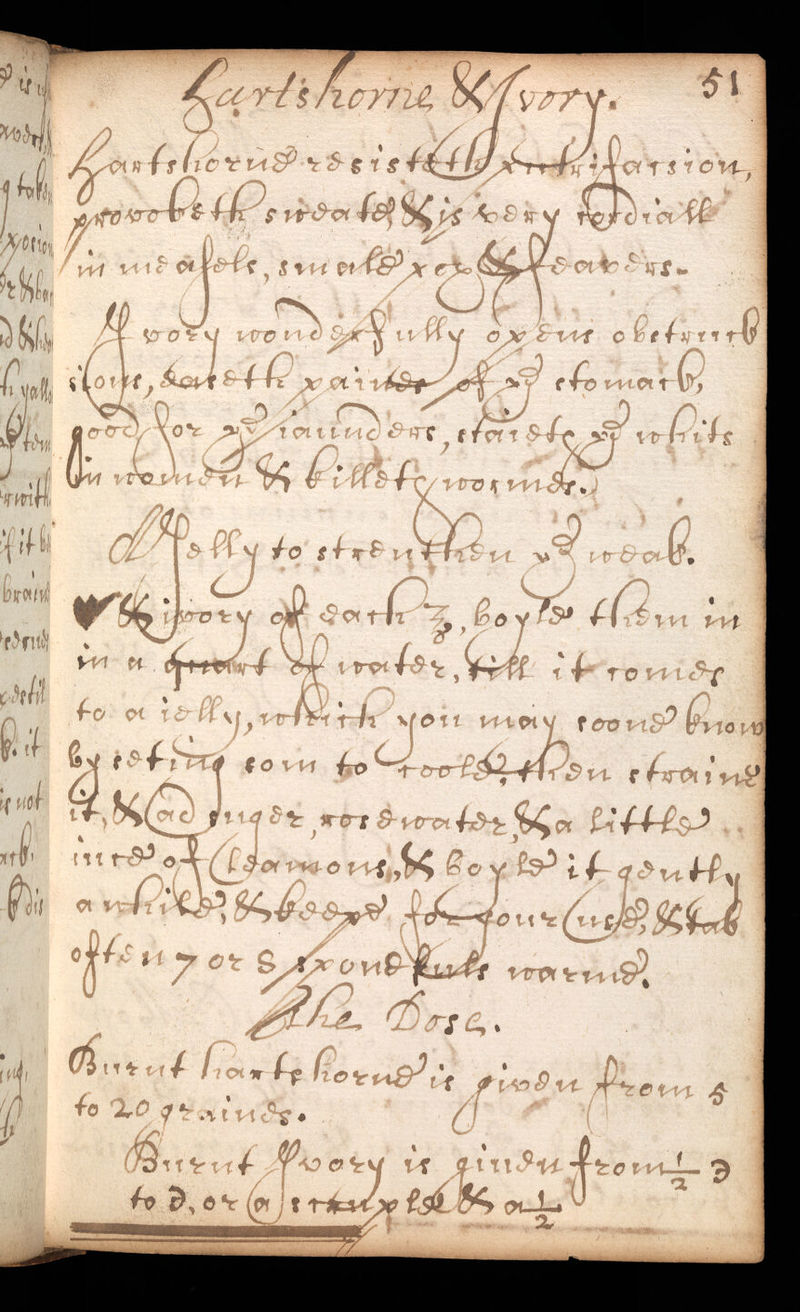 Hartshorne & Ivory. 51
Hartshorne resisteth putrifacsion,
provoketh sweate, & is very cordiall
in measels, smale pox & feavers.
Ivory wonderfully opens obstruck
sions, easeth paines of ye stomack,
good for ye iaunders, staieth ye whits
in women & killeth wormes.
A Jelly to strenthen ye weak.
& ivory of each ℥, boyle them in
in a quart of water, till it comes
to a ielly, which you may soone know
by seting som to coole, then straine
it, & ad suger, rosewater, & a little
iuce of leamons, & boyle it gently
a while, & keepe for your use, & tak
often 7 or 8 sponefuls warme.
The Dose.
Burnt hartshorne is given from 5
to 20 graines.
Burnt Ivory is giuen from ½ ℈
to ℈, or a scruple & a ½